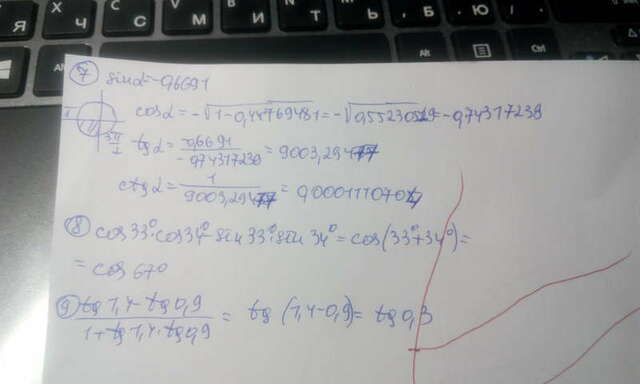 Я Ч С М И Т Ь Б Ю
Alt Ctrl
7 sinα=-0,6691
cosα=-√1-0,44769481=-√0,55230519=-0,74317238
3π/2 tgα=-0,6691/-0,74317238=9003,29477
ctgα=1/9003,29477=0,000111070
8 cos33°·cos34°-sin33°·sin34°=cos(33°+34°)=
=cos67°
9 tg1,4-tg0,9/1+tg1,4·tg0,9=tg(1,4-0,9)=tg0,3